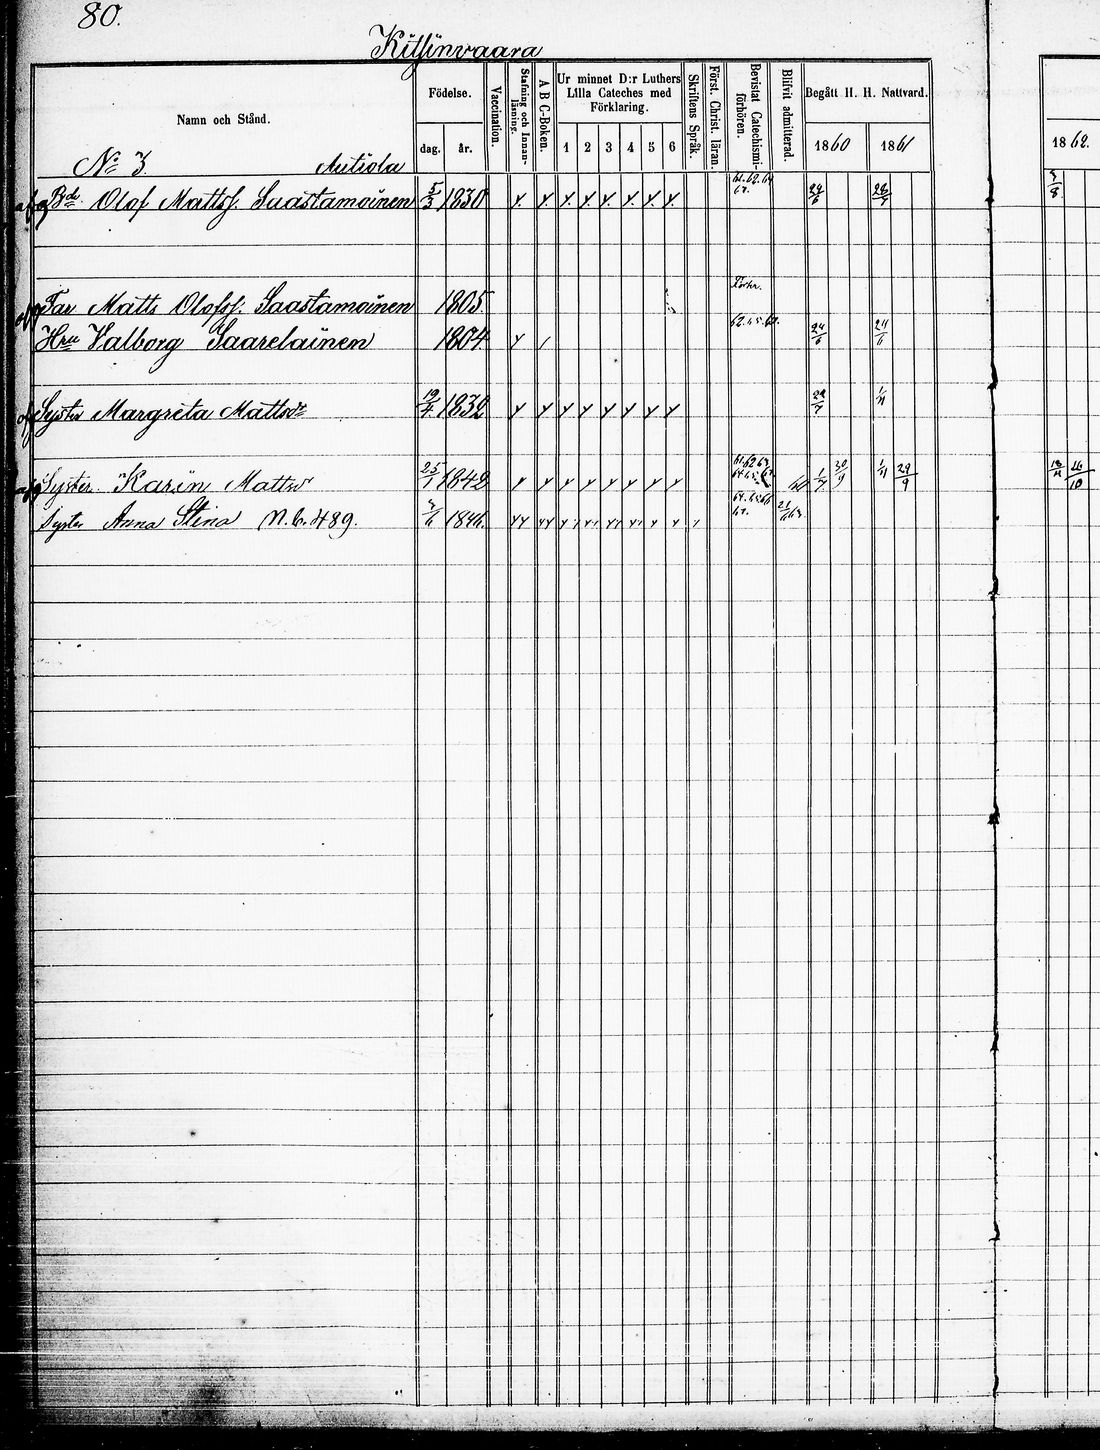 80.
Kitsinvaara
Namn och Stånd.
Födelse.
dag. år.
Vaccination.
Stafning och Innanläsning.
A B C-Boken.
Ur minnet D:r Luthers Lilla Cateches med Förklaring.
1 2 3 4 5 6
Skriftens Språk.
Först. Christ. läran.
Bevistat Catechismiförhören.
Blifvit admitterad.
Begått H. H. Nattvard.
1860 1861
1862.
No 3. Autiola
Bde Olof Mattss. Saastamoinen 5/3 1830 24/6
Far Matts Olofss. Saastamoinen 1805.
Hru Valborg Saarelainen 1804 24/6 24/6
Syster Margreta Mattsdr 19/4 1832
Syster Karin Mattsdr 25/1 1842 1/7 30/9 29/9
Syster Anna Stina N.b. 489. 1846. 64.65.66 67.